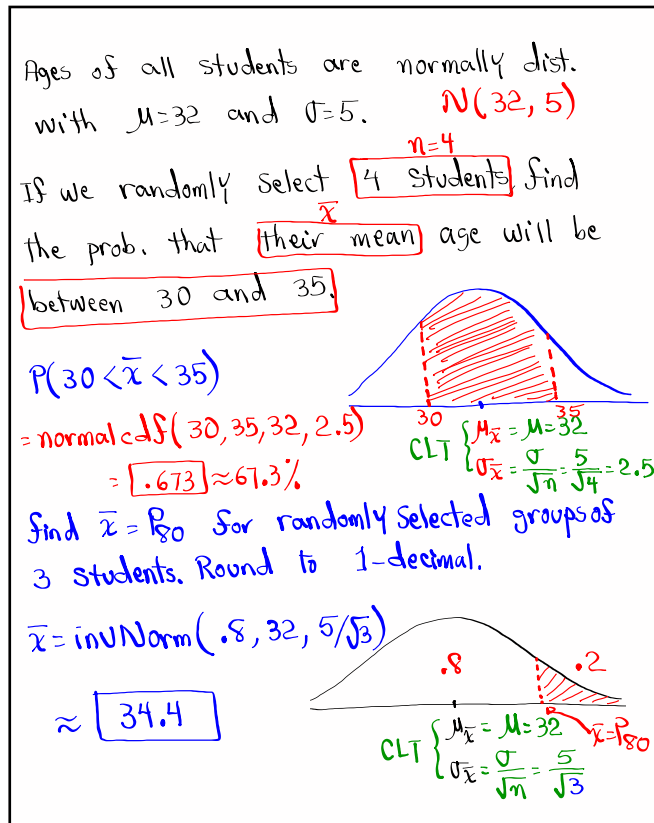 Ages of all students are normally dist.
with μ=32 and σ=5. N(32, 5)
n=4
If we randomly select 4 students, find
x̄
the prob. that their mean age will be
between 30 and 35.
P(30 < x̄ < 35)
30 35
= normalcdf(30, 35, 32, 2.5)
CLT { μx̄ = μ = 32
σx̄ = σ/√n = 5/√4 = 2.5
= .673 ≈ 67.3%
find x̄ = P80 for randomly selected groups of
3 students. Round to 1-decimal.
x̄ = invNorm(.8, 32, 5/√3)
.8 .2
≈ 34.4
x̄ = P80
CLT { μx̄ = μ = 32
σx̄ = σ/√n = 5/√3